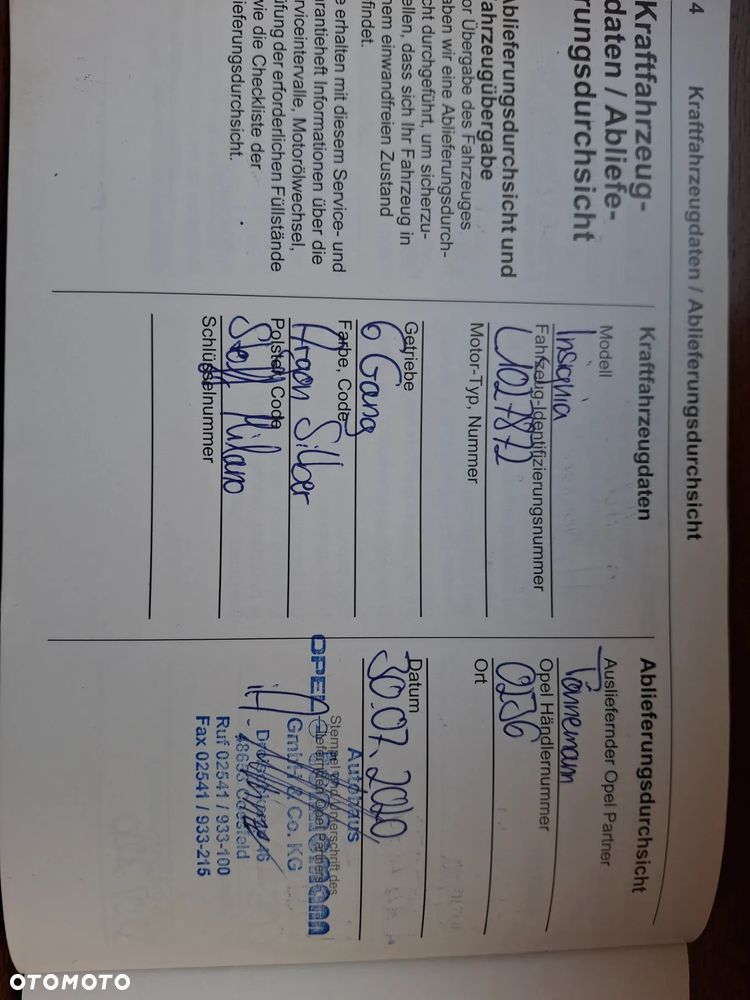 4
Kraftfahrzeugdaten / Ablieferungsdurchsicht
Kraftfahrzeug-
daten / Abliefe-
rungsdurchsicht
Ablieferungsdurchsicht und
ahrzeugübergabe
or Übergabe des Fahrzeuges
aben wir eine Ablieferungsdurch-
cht durchgeführt, um sicherzu-
ellen, dass sich Ihr Fahrzeug in
nem einwandfreien Zustand
findet.
e erhalten mit diesem Service- und
arantieheft Informationen über die
rviceintervalle, Motorölwechsel,
üfung der erforderlichen Füllstände
wie die Checkliste der
ieferungsdurchsicht.
Kraftfahrzeugdaten
Modell
Insignia
Fahrzeug-Identifizierungsnummer
L1027872
Motor-Typ, Nummer
Getriebe
6 Gang
Farbe, Code
Argon Silber
Polster, Code
Stoff Milano
Schlüsselnummer
Ablieferungsdurchsicht
Ausliefernder Opel Partner
Opel Händlernummer
0256
Ort
Datum
30.07.2020
Stempel und Unterschrift des
ausliefernden Opel Partners
OPEL
Autohaus
GmbH & Co. KG
Ruf 02541 / 933-100
Fax 02541 / 933-215
OTOMOTO